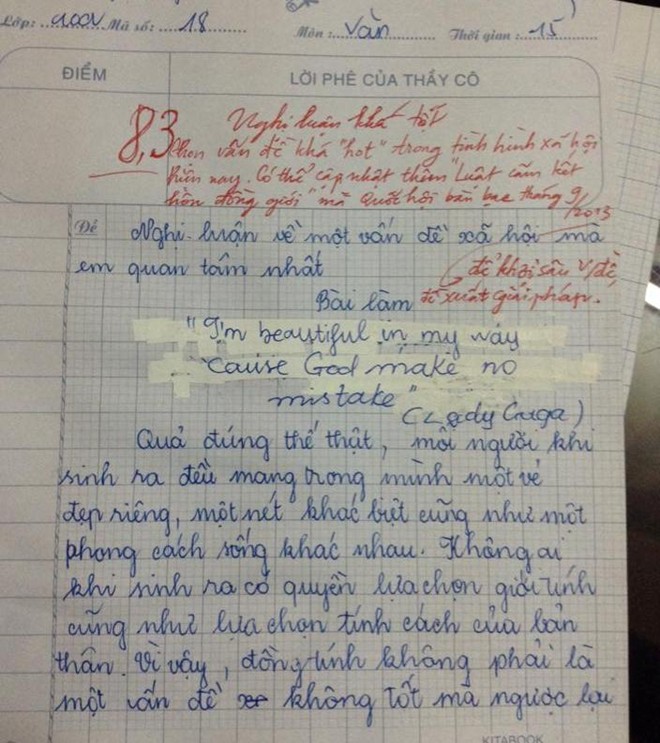 Lớp: 10CV Mã số: 18 Môn: Văn Thời gian: 15
ĐIỂM LỜI PHÊ CỦA THẦY CÔ
8,3 Nghị luận khá tốt
Chọn vấn đề khá "hot" trong tình hình xã hội
hiện nay. Có thể cập nhật thêm "Luật cấm kết
hôn đồng giới" mà Quốc hội bàn bạc tháng 9/2013
Đề Nghị luận về một vấn đề xã hội mà
em quan tâm nhất để khơi sâu v/đề,
Bài làm đề xuất giải pháp.
"I'm beautiful in my way
'cause God make no
mistake"
(Lady Gaga)
Quả đúng thế thật, mỗi người khi
sinh ra đều mang trong mình một vẻ
đẹp riêng, một nét khác biệt cũng như một
phong cách sống khác nhau. Không ai
khi sinh ra có quyền lựa chọn giới tính
cũng như lựa chọn tính cách của bản
thân. Vì vậy, đồng tính không phải là
một vấn đề không tốt mà ngược lại
KITABOOK